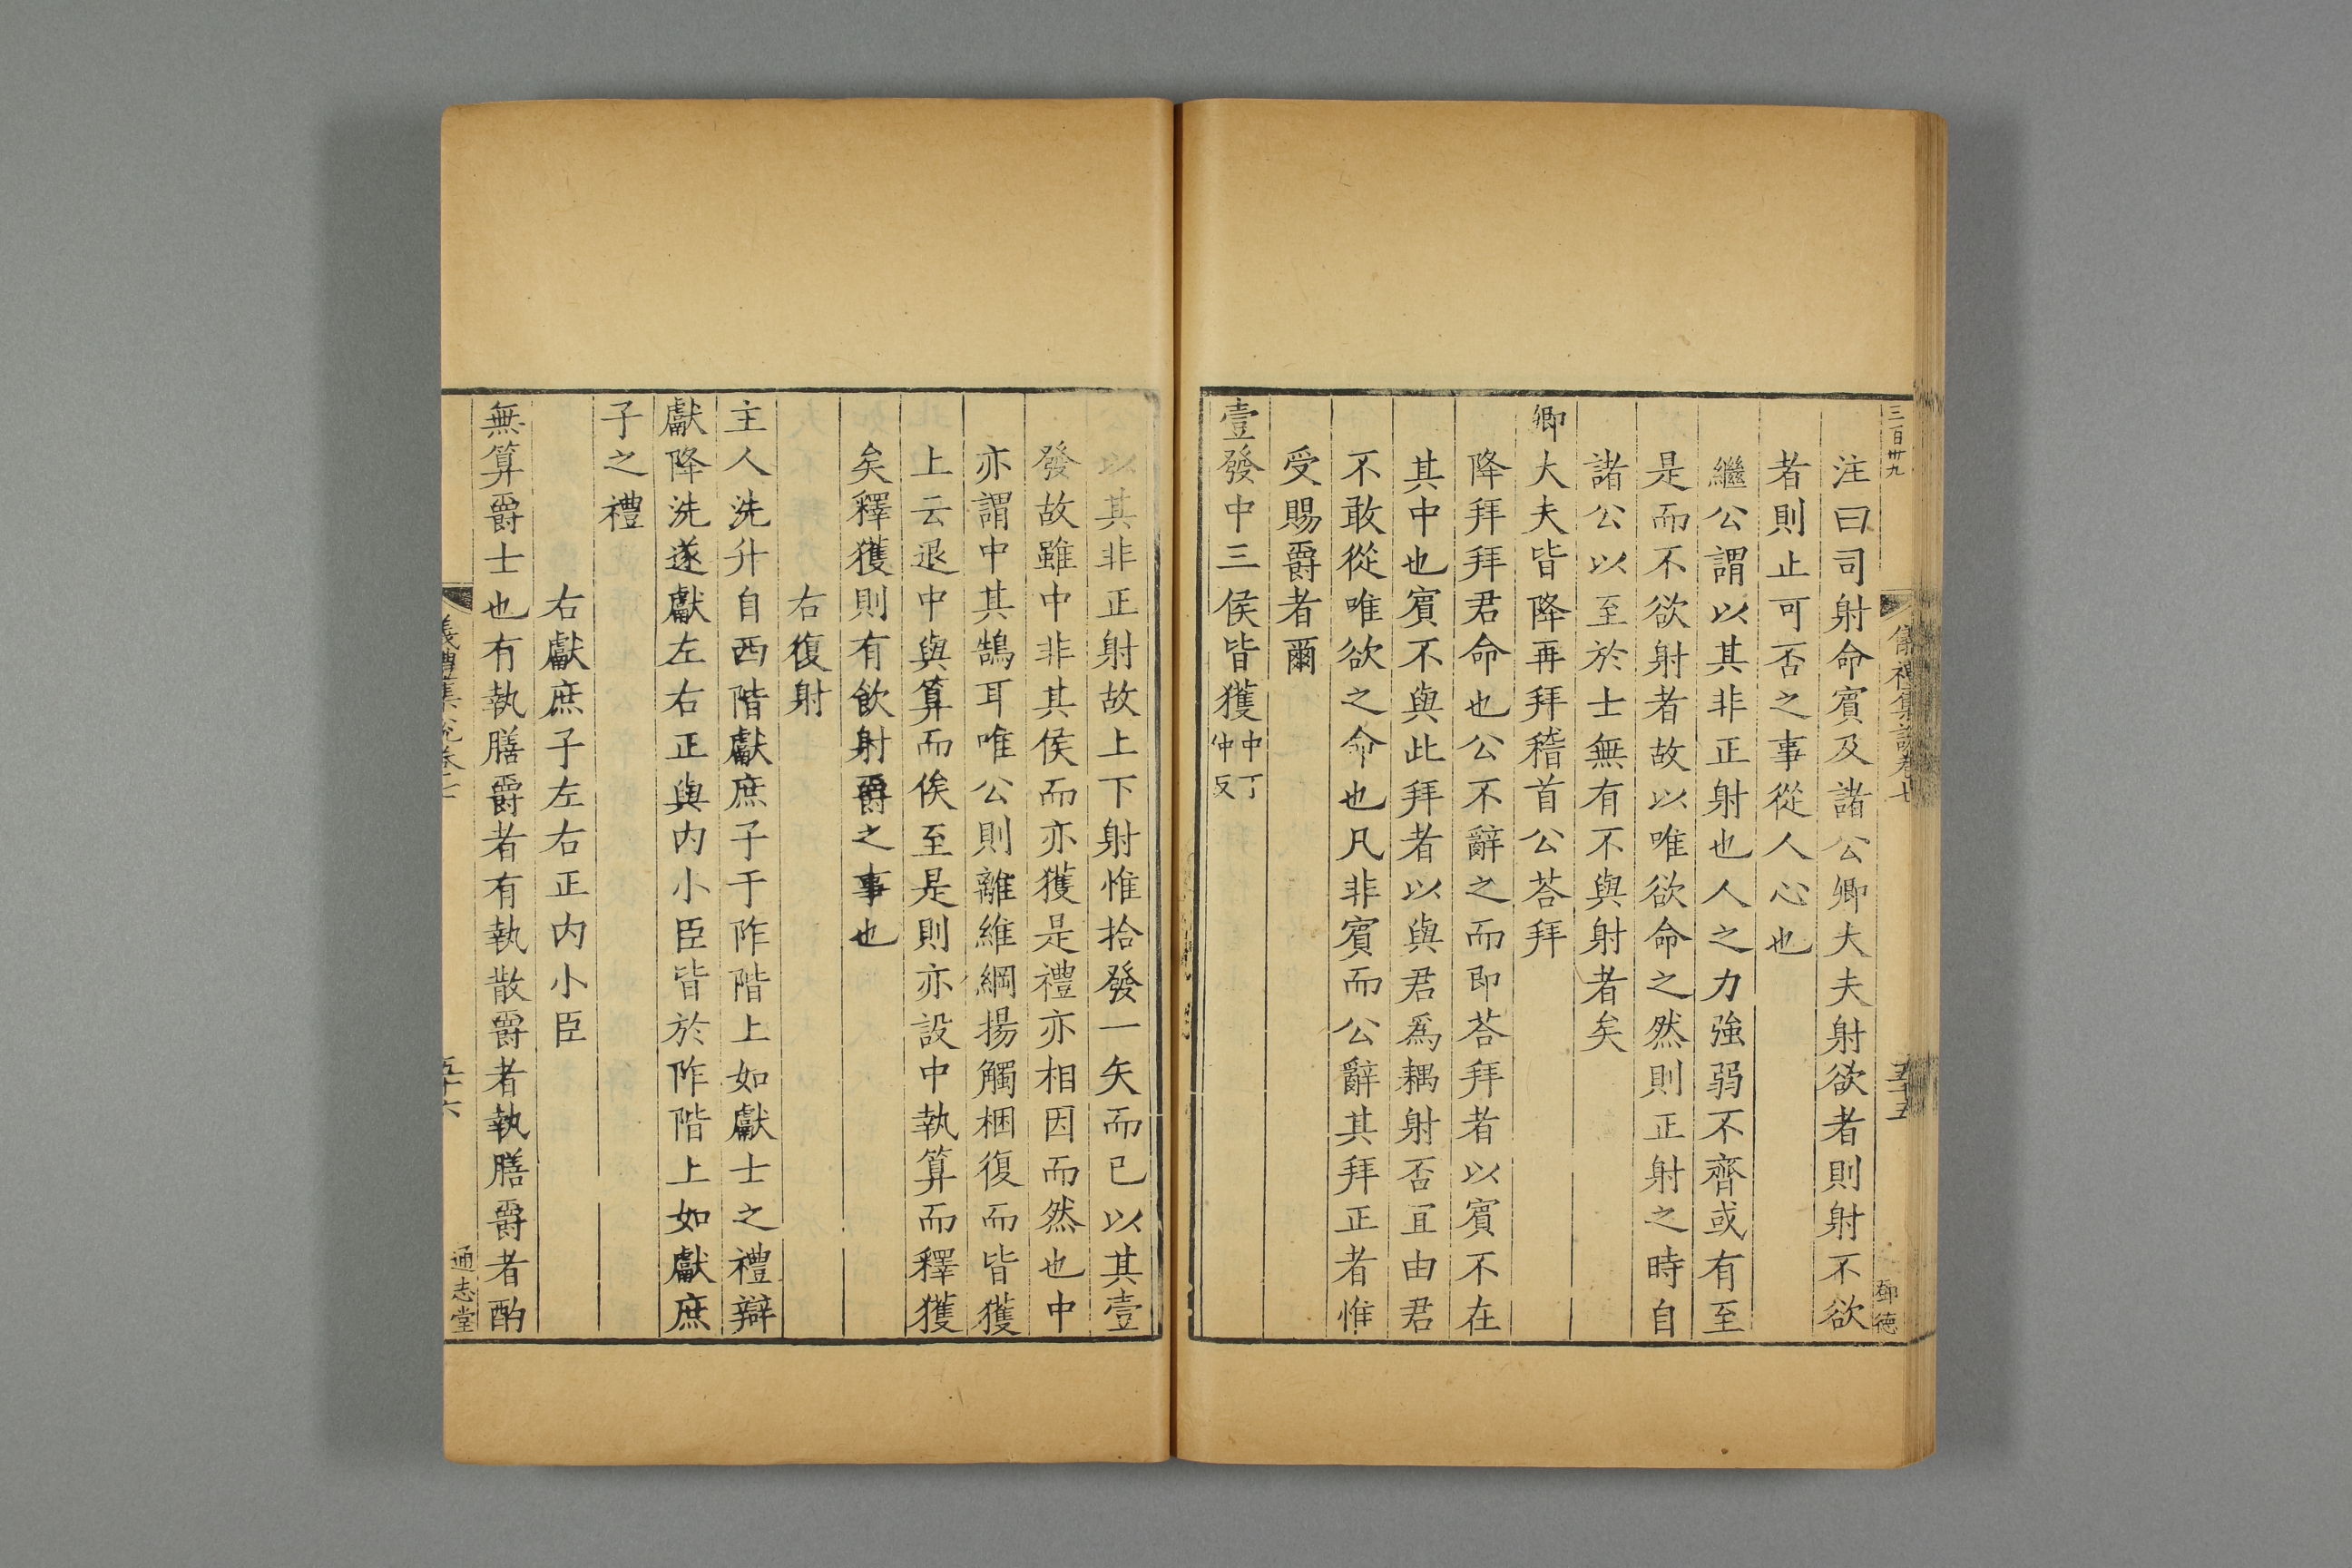 三百卅九
儀禮集說卷七
五十五
鄧德
注曰司射命賔及諸公卿大夫射欲者則射不欲
者則止可否之事從人心也
繼公謂以其非正射也人之力強弱不齊或有至
是而不欲射者故以唯欲命之然則正射之時自
諸公以至於士無有不與射者矣
卿大夫皆降再拜稽首公荅拜
降拜拜君命也公不辭之而即荅拜者以賔不在
其中也賔不與此拜者以與君爲耦射否宜由君
不敢從唯欲之命也凡非賔而公辭其拜正者惟
受賜爵者爾
壹發中三侯皆獲中丁仲反
以其非正射故上下射惟拾發一矢而已以其壹
發故雖中非其侯而亦獲是禮亦相因而然也中
亦謂中其鵠耳唯公則離維綱揚觸梱復而皆獲
上云退中與算而俟至是則亦設中執算而釋獲
矣釋獲則有飲射爵之事也
右復射
主人洗升自西階獻庶子于阼階上如獻士之禮辯
獻降洗遂獻左右正與内小臣皆於阼階上如獻庶
子之禮
右獻庶子左右正内小臣
無算爵士也有執膳爵者有執散爵者執膳爵者酌
儀禮集說卷七
五十六
通志堂